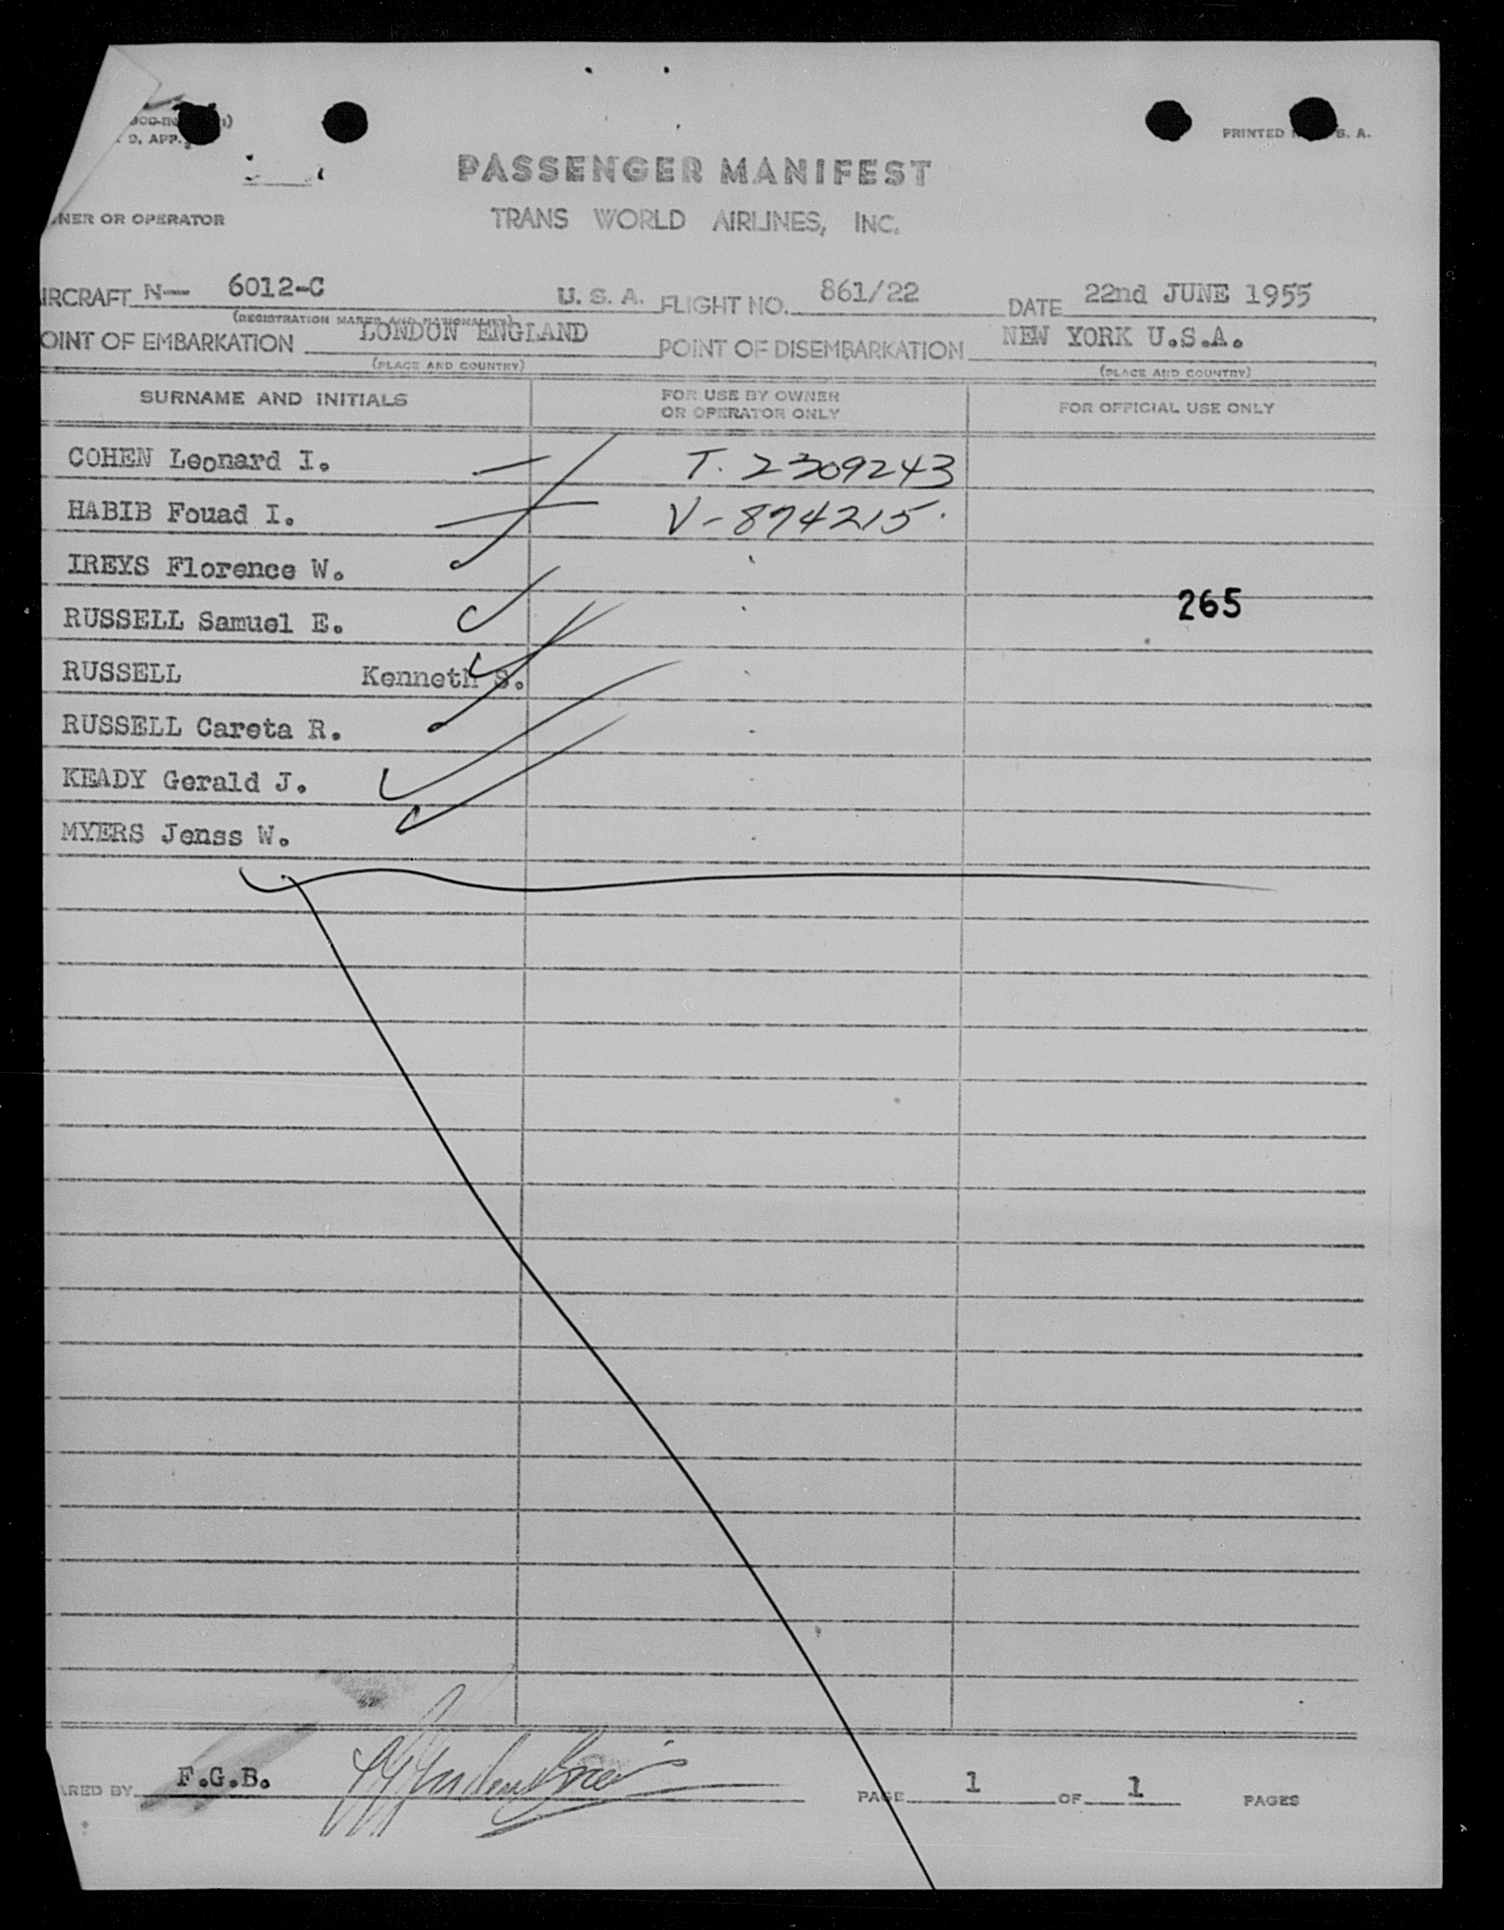 9, APP.
PRINTED S. A.
PASSENGER MANIFEST
NER OR OPERATOR
TRANS WORLD AIRLINES, INC.
IRCRAFT N— 6012-C U. S. A. FLIGHT NO. 861/22 DATE 22nd JUNE 1955
(REGISTRATION MARKS AND NATIONALITY)
OINT OF EMBARKATION LONDON ENGLAND POINT OF DISEMBARKATION NEW YORK U.S.A.
(PLACE AND COUNTRY) (PLACE AND COUNTRY)
SURNAME AND INITIALS FOR USE BY OWNER OR OPERATOR ONLY FOR OFFICIAL USE ONLY
COHEN Leonard I. T. 2309243
HABIB Fouad I. V-874215.
IREYS Florence W.
265
RUSSELL Samuel E.
RUSSELL Kenneth S.
RUSSELL Careta R.
KEADY Gerald J.
MYERS Jenss W.
ARED BY F.G.B. PAGE 1 OF 1 PAGES